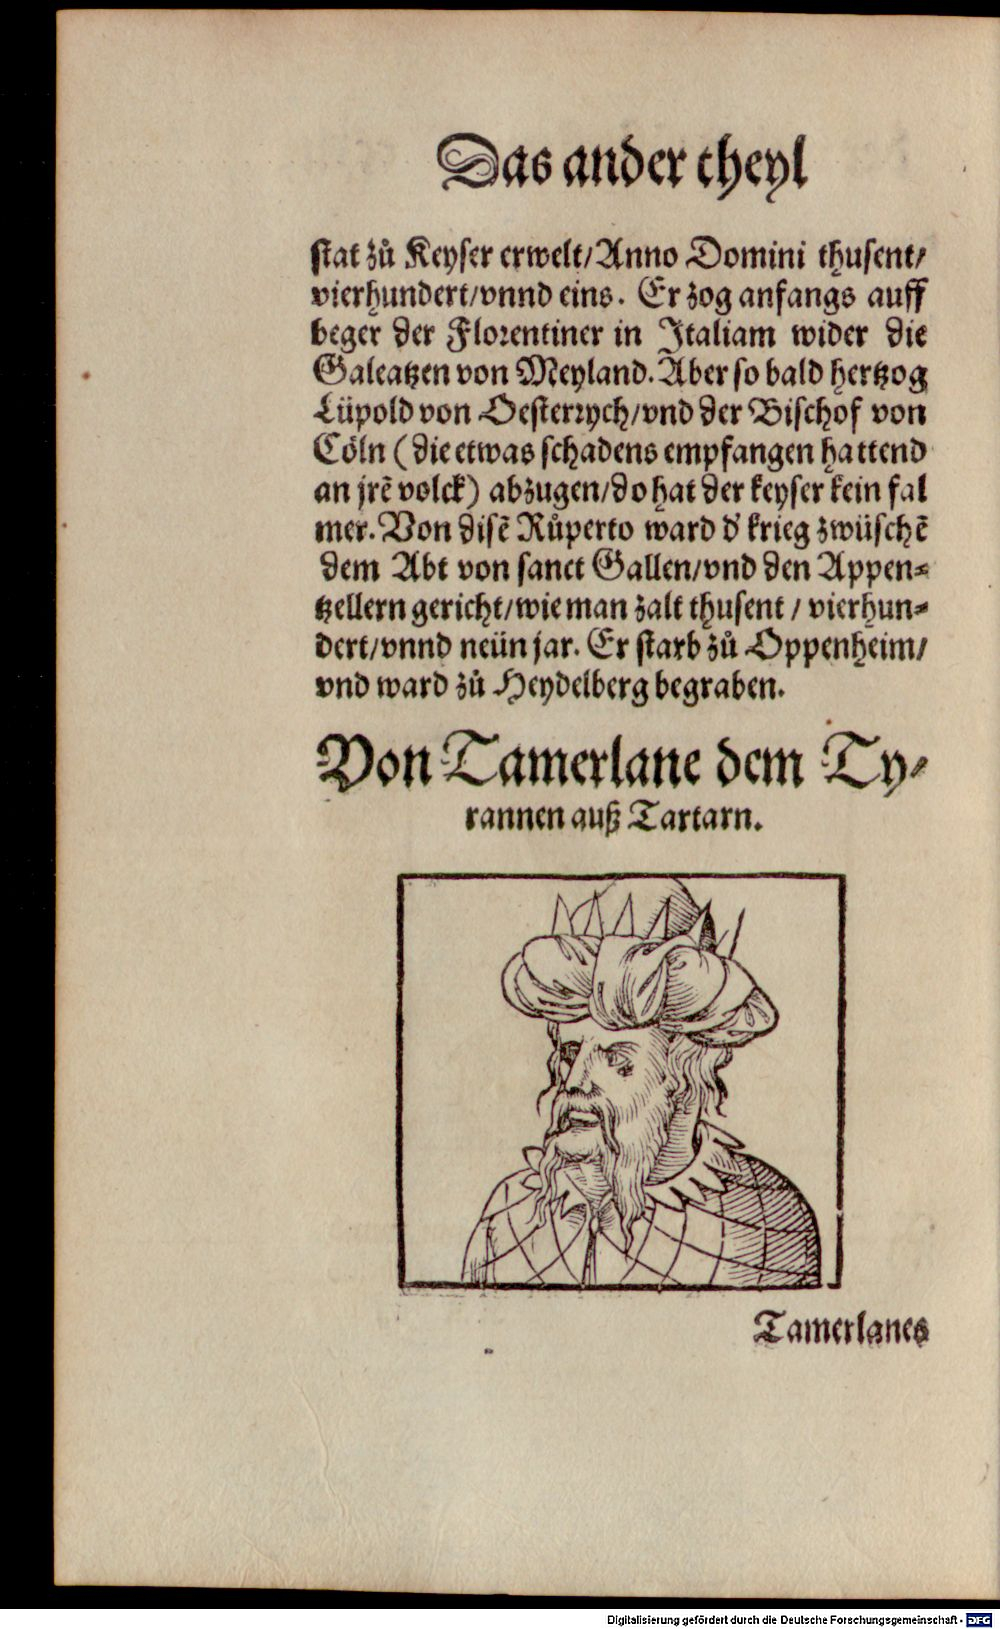 Das ander theyl
stat zů Keyser erwelt/Anno Domini thusent/
vierhundert/vnnd eins. Er zog anfangs auff
beger der Florentiner in Italiam wider die
Galeatzen von Meyland. Aber so bald hertzog
Lüpold von Oesterrych/vnd der Bischof von
Cöln (die etwas schadens empfangen hattend
an jrẽ volck) abzugen/do hat der keyser kein fal
mer. Von disẽ Růperto ward d' krieg zwüschẽ
dem Abt von sanct Gallen/vnd den Appen-
tzellern gericht/wie man zalt thusent / vierhun-
dert/vnnd neün jar. Er starb zů Oppenheim/
vnd ward zů Heydelberg begraben.
Von Tamerlane dem Ty-
rannen auß Tartarn.
Tamerlanes
Digitalisierung gefördert durch die Deutsche Forschungsgemeinschaft - DFG